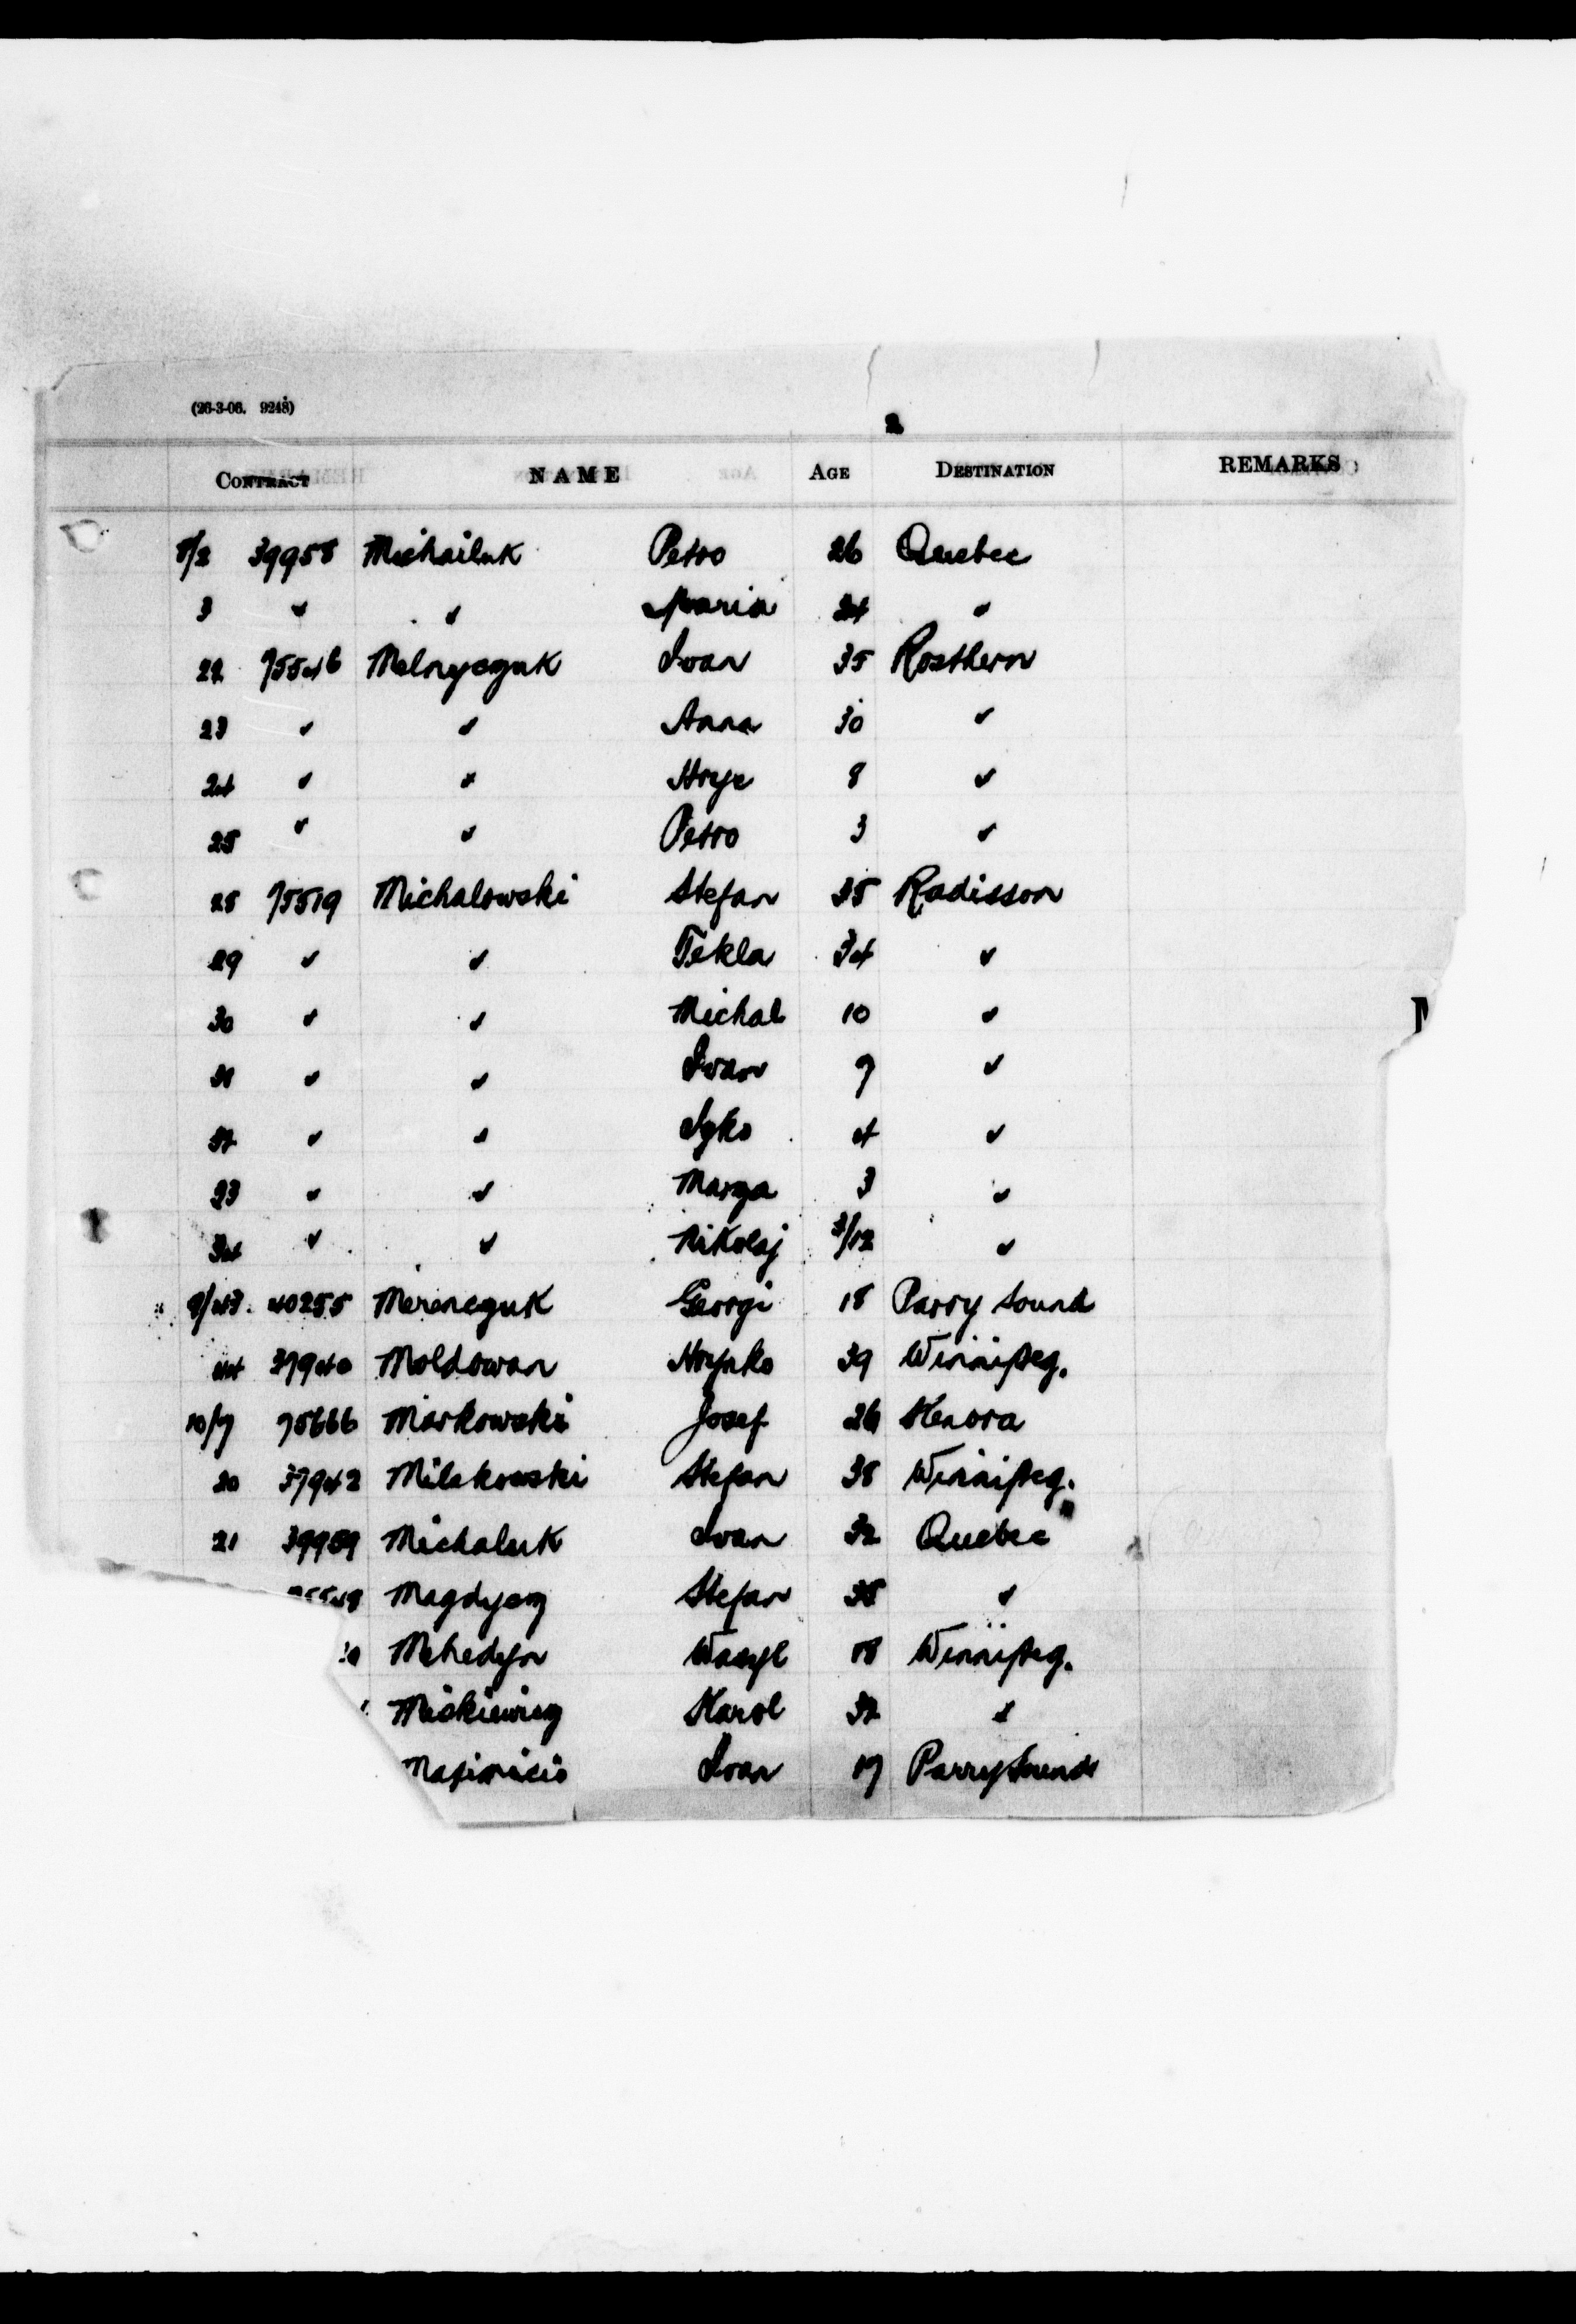 (26-3-06. 9248)
2
CONTRACT NAME AGE DESTINATION REMARKS
8/2 39958 Michailuk Petro 26 Quebec
3 " " Maria 24 "
22 75546 Melnyczuk Ivan 35 Rosthern
23 " " Anna 30 "
24 " " Hryc 8 "
25 " " Petro 3 "
28 75519 Michalowski Stefan 35 Radisson
29 " " Tekla 34 "
30 " " Michal 10 "
31 " " Ivan 7 "
32 " " Iyko 4 "
33 " " Marya 3 "
34 " " Nikolaj 3/12 "
9/43. 40255 Merenczuk Georgi 18 Parry Sound
44 37940 Moldowan Hrynko 39 Winnipeg.
10/7 75666 Markowski Josef 26 Kenora
20 37942 Milakowski Stefan 38 Winnipeg.
21 39959 Michaluk Ivan 32 Quebec
Magdycz Stefan 38 "
Mehedyn Wasyl 18 Winnipeg.
Mickiewicz Karol 32 "
Ivan 17 Parry Sound